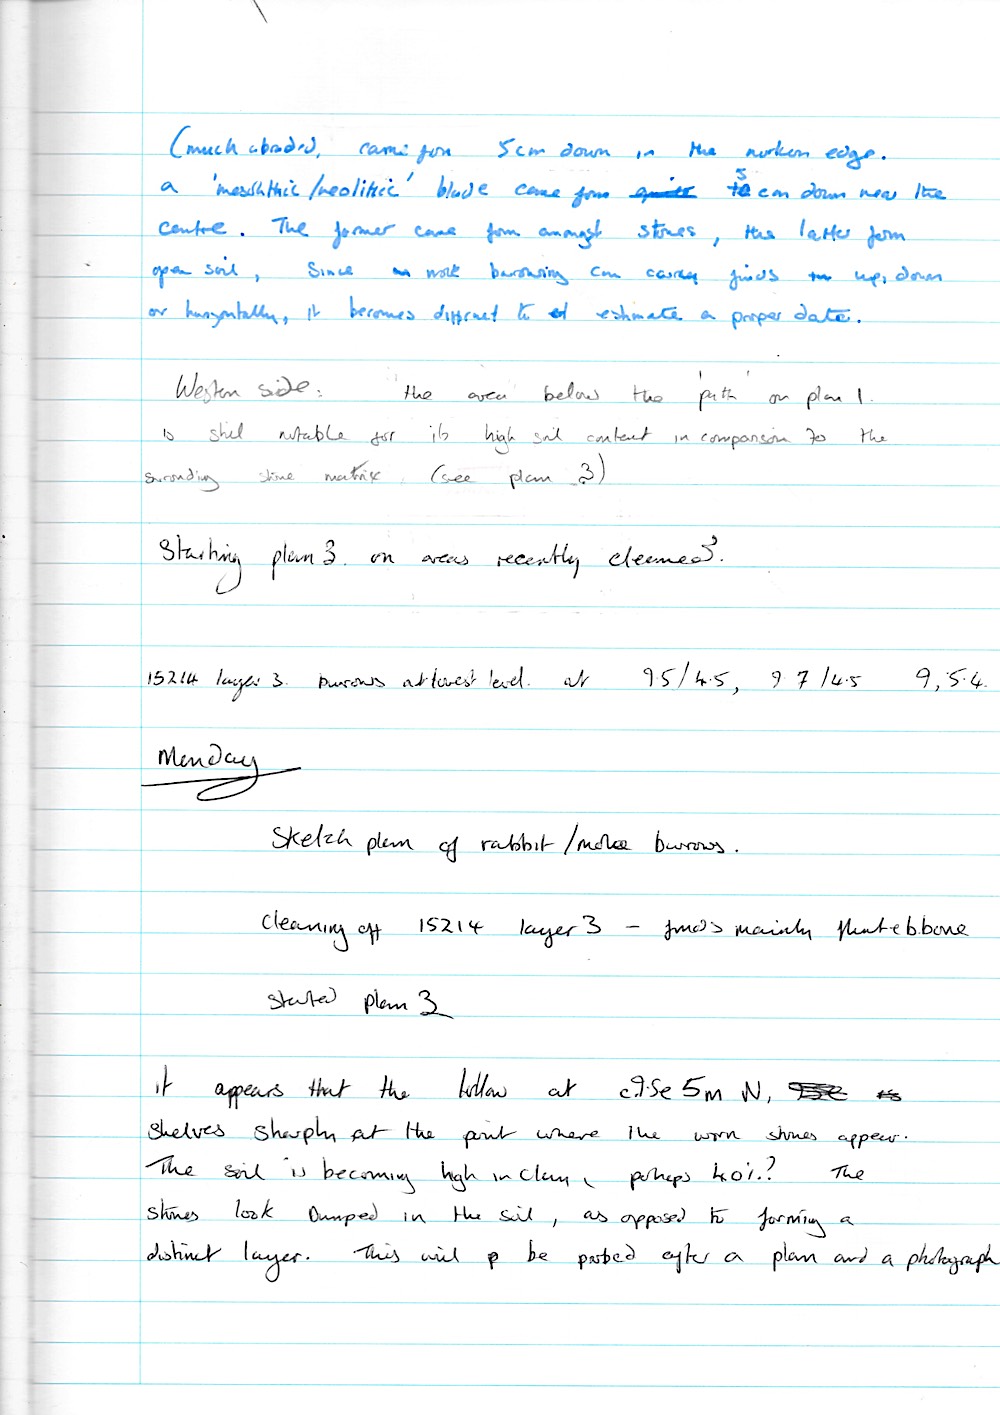 (much abraded, came from 5cm down in the northern edge.
a 'mesolithic/neolithic' blade came from 5 cm down near the
centre. The former came from amongst stones, the latter from
open soil, Since mole burrowing can carry finds up, down
or horizontally, it becomes difficult to estimate a proper date.
Western side: the area below the 'path' on plan 1.
is still notable for its high soil content in comparison to the
surounding stone matrix. (see plan 3)
Starting plan 3. on areas recently cleaned.
15214 layer 3. burrows at lowest level. at 95/4.5, 97/4.5 9,5.4.
Monday
Sketch plan of rabbit/mole burrows.
Cleaning off 15214 layer 3 - finds mainly flint & bone
started plan 3
it appears that the hollow at c9.5e 5m N,
shelves sharply at the point where the worn stones appear.
The soil is becoming high in clay, perhaps 40%? The
stones look dumped in the soil, as opposed to forming a
distinct layer. This will be probed after a plan and a photograph